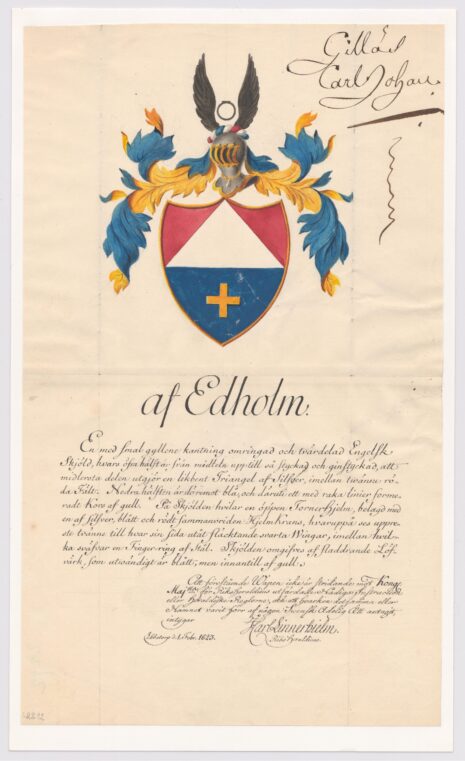 Gillas
Carl Johan
af Edholm:
En med smal gyllene kantning omringad och tvärdelad Engelsk
Skjöld, hvars öfra hälft är från midteln upptill så styckad och ginstyckad, att
medlersta delen utgjör en likbent Triangel af Silfver, imellan tvänne rö-
da Fält. Nedra hälften är deremot blå, och daruti ett med raka linier forme-
radt Kors af gull. På Skjölden hvilar en öppen Tornerhjelm, belagd med
en af silfver, blått och rödt sammanvriden Hjelmkrans, hvaruppå ses uppre-
ste tvänne till hvar sin sida utåt fläcktande svarta Wingar, imellan hvil-
ka sväfvar en Finger-ring af Stål. Skjölden omgifves af fladdrande Löf-
värk, som utvändigt är blått, men innantill af gull.
Att förestående Wapen icke är stridande mot Kongl.
Maj:ts för Riks Heraldicus utfärdade Nådiga Instruction
eller Heraldiske Reglorne, och att hvarken detsamma eller
Namnet varit förr af någon Svensk Adelig Ätt antagit,
intygar
d. 1. Febr. 1823.
Linnerhielm.
Riks Heraldicus.